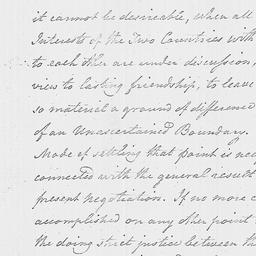 it cannot be desireable, when all
Interests of the Two Countries with
to each other are under discussion,
view to lasting friendship, to leave
so material a ground of difference
of an Unascertained Boundary.
Mode of settling that point is nec
connected with the general result
present negotiation. If no more c
accomplished on any other point
the doing strict justice between th